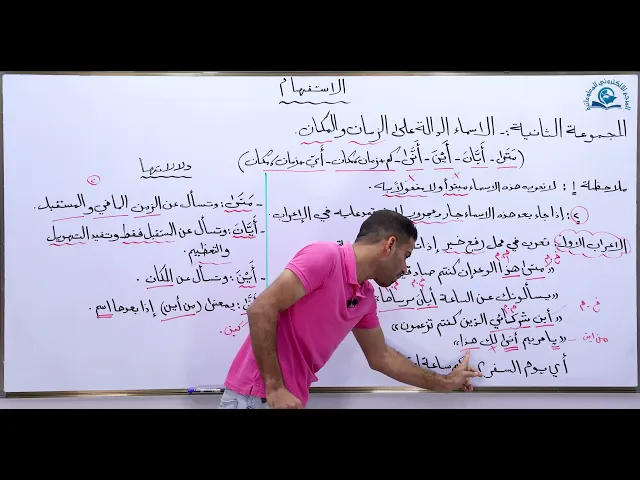 الاستفهام
المجموعة الثانية :- الاسماء الدالة على الزمان والمكان.
(متى - أيّان - أين - أنّى - كم + زمان، مكان - أي + زمان، مكان)
ملاحظة ١: لا تعرب هذه الاسماء مبتدأ ولا مفعولاً به
٢: إذا جاء بعد هذه الاسماء جار ومجرور عليه في الإعراب
الإعراب الأول: تعرب في محل رفع خبر
خ.م
م.م
«متى هذا الوعد إن كنتم
«يسألونك عن الساعة أيان مرساها»
«أين شركائي الذين كنتم تزعمون»
خ.م
«يا مريم أنى لك هذا»
من أين
أي يوم السفر؟ ساعة
ودلالاتها
- متى: وتسأل عن الزمن الماضي والمستقبل.
- أيّان: وتسأل عن المستقبل فقط وتفيد التهويل
والتعظيم
- أين: وتسأل عن المكان
بمعنى (من أين) إذا بعدها اسم.
كيف
المجمع الالكتروني المعلوماتية